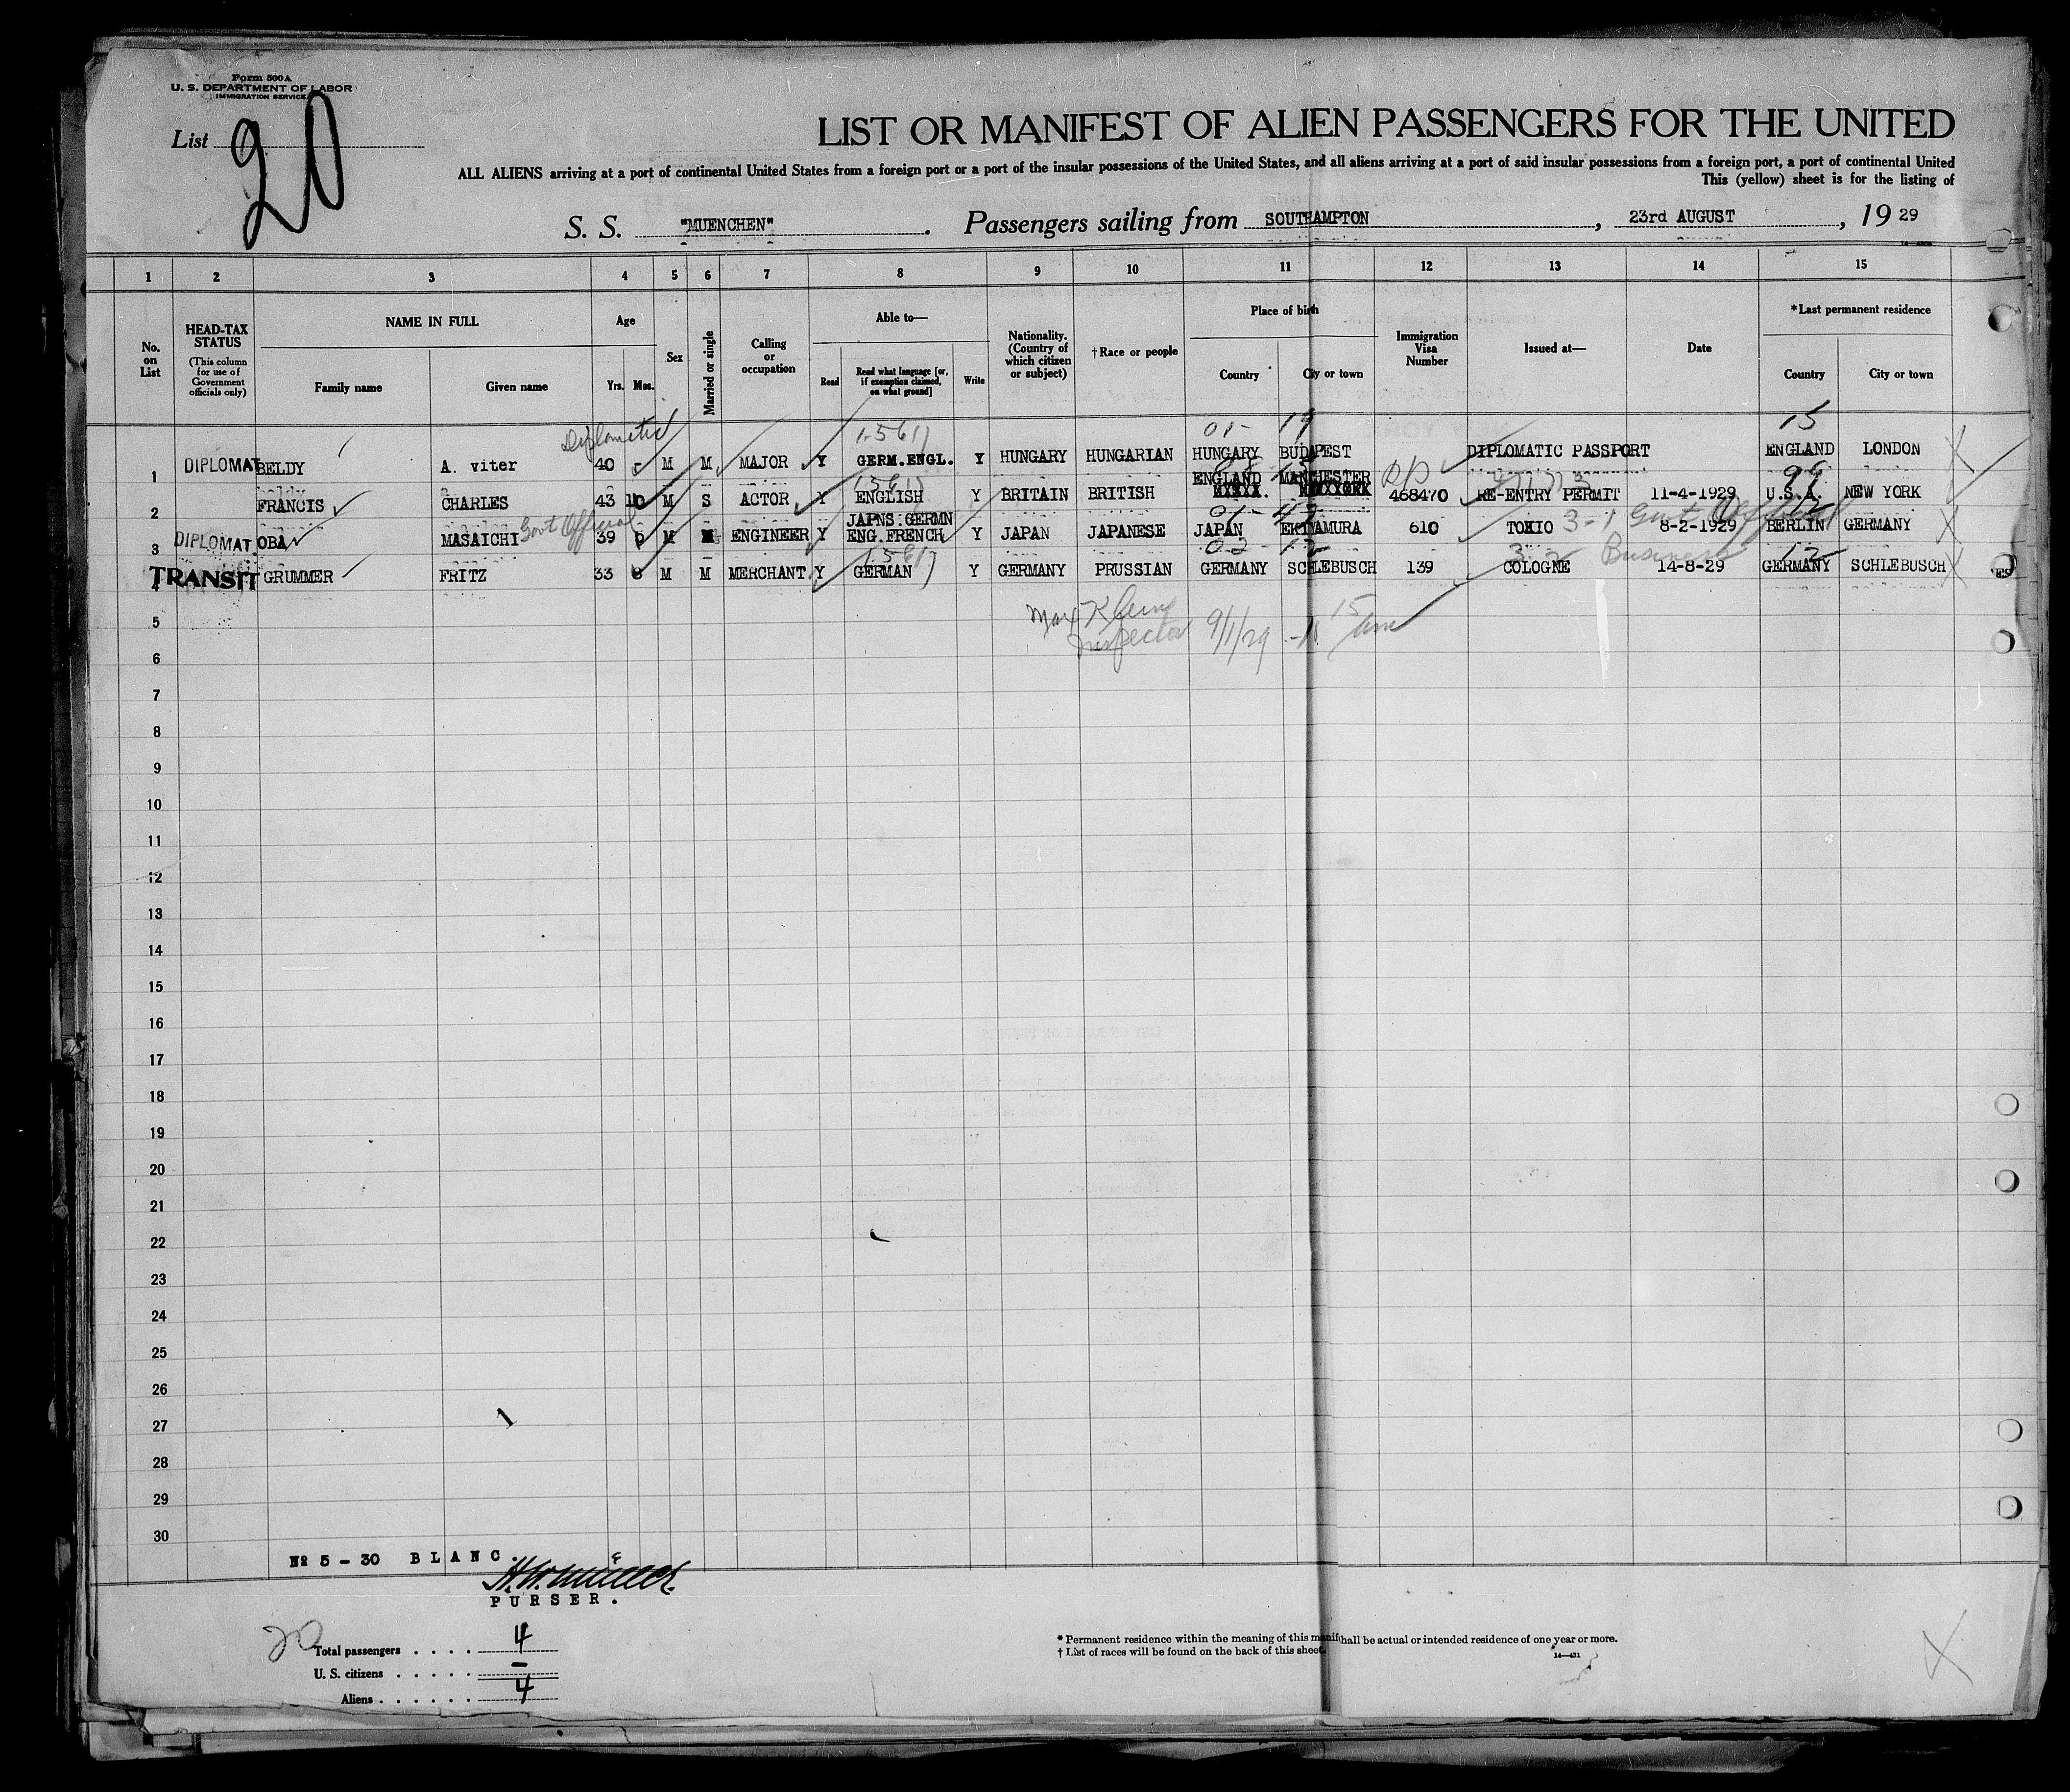 Form 500A
U. S. DEPARTMENT OF LABOR
IMMIGRATION SERVICE
List 20
LIST OR MANIFEST OF ALIEN PASSENGERS FOR THE UNITED
ALL ALIENS arriving at a port of continental United States from a foreign port or a port of the insular possessions of the United States, and all aliens arriving at a port of said insular possessions from a foreign port, a port of continental United
This (yellow) sheet is for the listing of
S. S. "MUENCHEN" . Passengers sailing from SOUTHAMPTON , 23rd AUGUST , 19 29
1 2 3 4 5 6 7 8 9 10 11 12 13 14 15
No. on List
HEAD-TAX STATUS
(This column for use of Government officials only)
NAME IN FULL
Family name Given name
Age
Yrs. Mos.
Sex
Married or single
Calling or occupation
Able to—
Read
Read what language [or, if exemption claimed, on what ground]
Write
Nationality. (Country of which citizen or subject)
†Race or people
Place of birth
Country City or town
Immigration Visa Number
Issued at—
Date
*Last permanent residence
Country City or town
Diplomatic 01- 19 15
1 DIPLOMAT BELDY A. viter 40 M M MAJOR Y GERM.ENGL. Y HUNGARY HUNGARIAN HUNGARY BUDAPEST DIPLOMATIC PASSPORT ENGLAND LONDON
ENGLAND MANCHESTER
2 FRANCIS CHARLES 43 10 M S ACTOR Y ENGLISH Y BRITAIN BRITISH 468470 RE-ENTRY PERMIT 11-4-1929 U.S.A. NEW YORK
JAPNS.GERMN 3-1 Govt Official
3 DIPLOMAT. OBA MASAICHI Govt Official 39 M ENGINEER Y ENG.FRENCH Y JAPAN JAPANESE JAPAN EKITAMURA 610 TOKIO 8-2-1929 BERLIN GERMANY
Business 12
4 TRANSIT GRUMMER FRITZ 33 M M MERCHANT. Y GERMAN Y GERMANY PRUSSIAN GERMANY SCHLEBUSCH 139 COLOGNE 14-8-29 GERMANY SCHLEBUSCH
5
Inspector 9/1/29
6
7
8
9
10
11
12
13
14
15
16
17
18
19
20
21
22
23
24
25
26
27
28
29
30
№ 5 - 30 BLANC.
PURSER.
20
Total passengers . . . . 4
U. S. citizens . . . . . —
Aliens . . . . . . 4
* Permanent residence within the meaning of this manif hall be actual or intended residence of one year or more.
† List of races will be found on the back of this sheet.
14—431